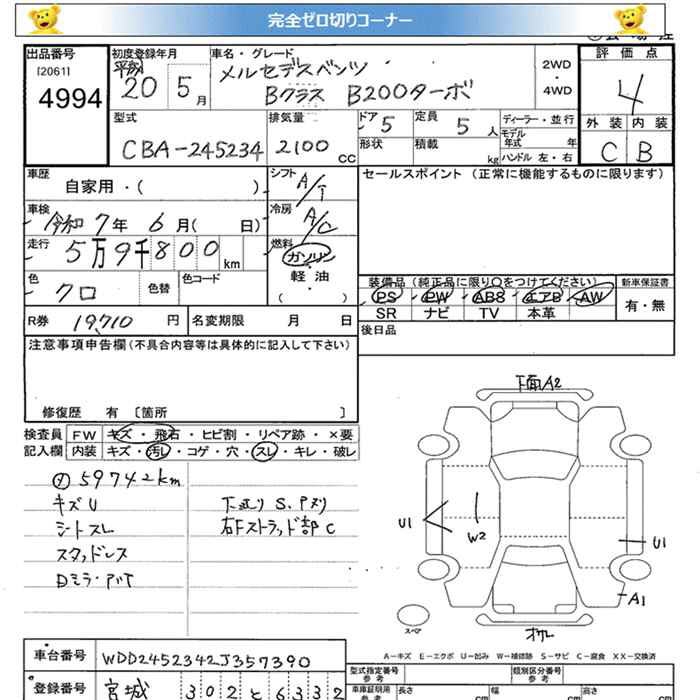 完全ゼロ切りコーナー
出品番号
[2061]
4994
初度登録年月
平成
20 5月
車名・グレード
メルセデスベンツ
Bクラス B200ターボ
2WD
・
4WD
評価点
4
外装 内装
C B
型式
CBA-245234
排気量
2100 cc
ドア 5
定員 5 人
形状
積載 kg
ディーラー・並行
モデル年式 年
ハンドル 左・右
車歴
自家用・( )
シフト A/T
セールスポイント (正常に機能するものに限ります)
車検
令和7年 6月( 日)
冷房 A/C
走行
5万9千800 km
燃料
ガソリン
・
軽油
( )
色
クロ
色替
色コード
装備品 (純正品に限り○をつけてください)
PS PW ABS エアB AW
SR ナビ TV 本革
新車保証書
有・無
R券 19,710 円
名変期限 月 日
後日品
注意事項申告欄(不具合内容等は具体的に記入して下さい)
修復歴 有 〔箇所 〕
検査員
記入欄
FW キズ・飛石・ヒビ割・リペア跡・×要
内装 キズ・汚レ・コゲ・穴・スレ・キレ・破レ
59742km
キズU
シートスレ
スタッドレス
Dミラー
下廻り S.Pヌリ
右Fストラット部 C
下面A2
U1
W2
U1
A1
スペア
A-キズ E-エクボ U-凹み W-補修跡 S-サビ C-腐食 XX-交換済
車台番号 WDD2452342J357390
登録番号 宮城 302 と 6332
型式指定番号
類別区分番号
車庫証明用
参考
長さ cm
幅 cm
高さ cm